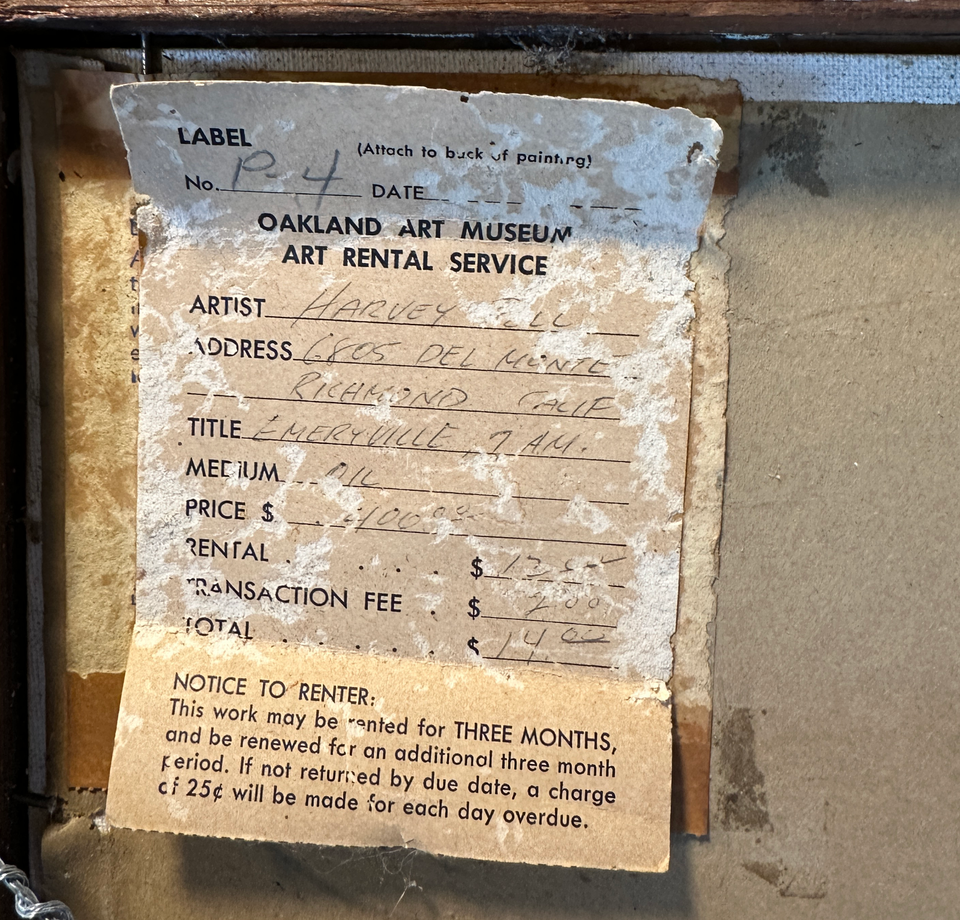 LABEL
(Attach to back of painting)
No. P-4 DATE
OAKLAND ART MUSEUM
ART RENTAL SERVICE
ARTIST HARVEY
ADDRESS 6805 DEL MONTE
RICHMOND CALIF
TITLE EMERYVILLE, 7 AM.
MEDIUM OIL
PRICE $ 400.00
RENTAL . . . . . $
TRANSACTION FEE . $ 2.00
TOTAL . . . . . $ 14.00
NOTICE TO RENTER:
This work may be rented for THREE MONTHS,
and be renewed for an additional three month
period. If not returned by due date, a charge
of 25¢ will be made for each day overdue.